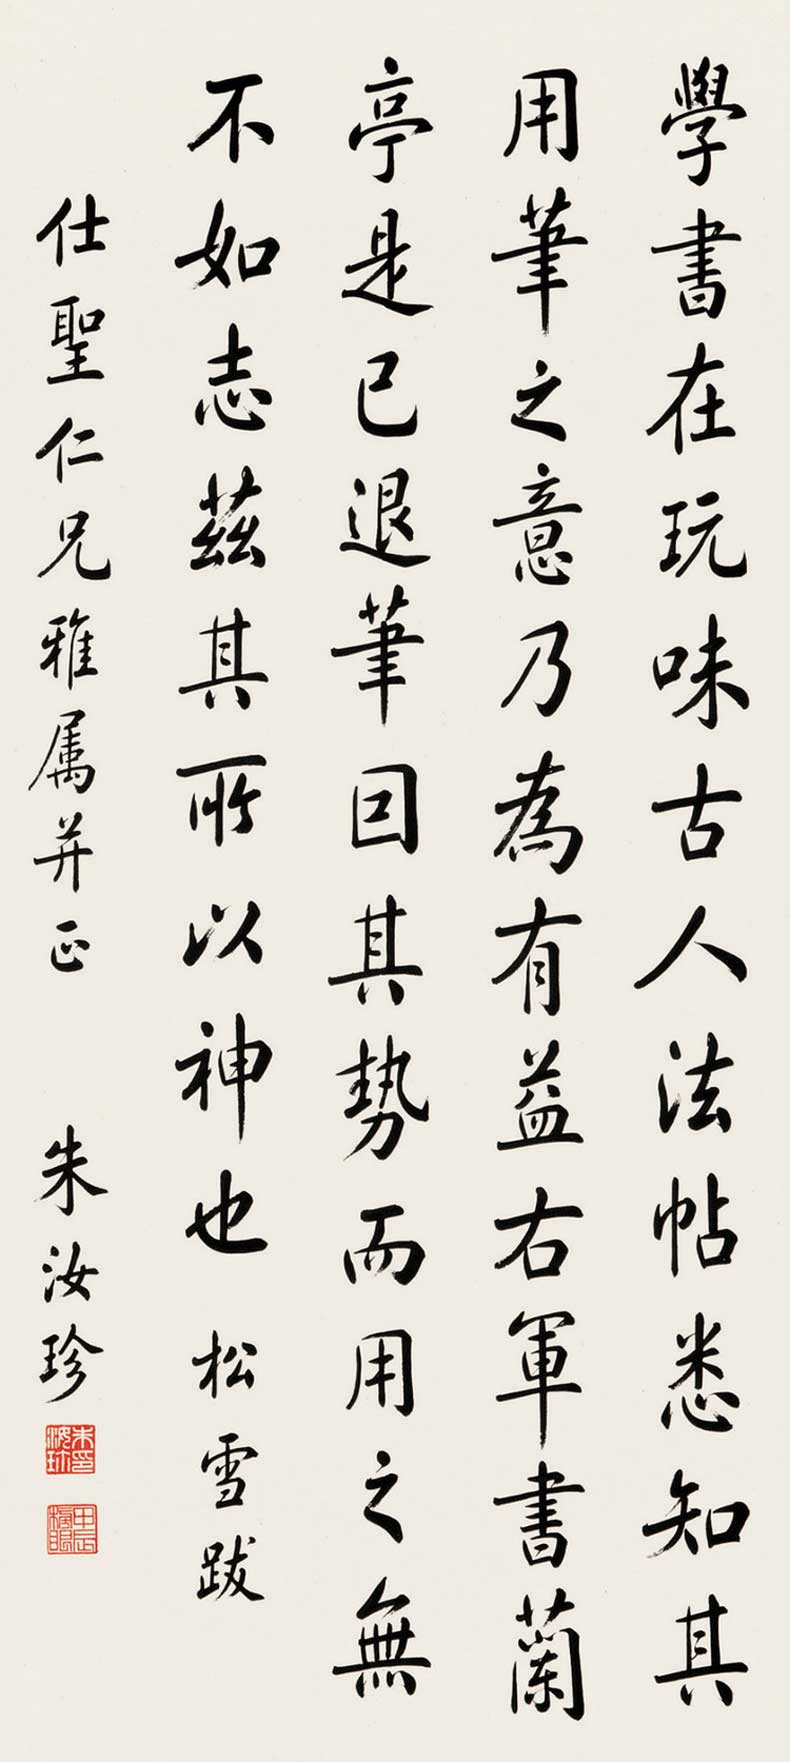 學書在玩味古人法帖悉知其
用筆之意乃為有益右軍書蘭
亭是已退筆因其勢而用之無
不如志茲其所以神也 松雪跋
仕聖仁兄雅属并正 朱汝珍
朱汝珍印
甲辰榜眼